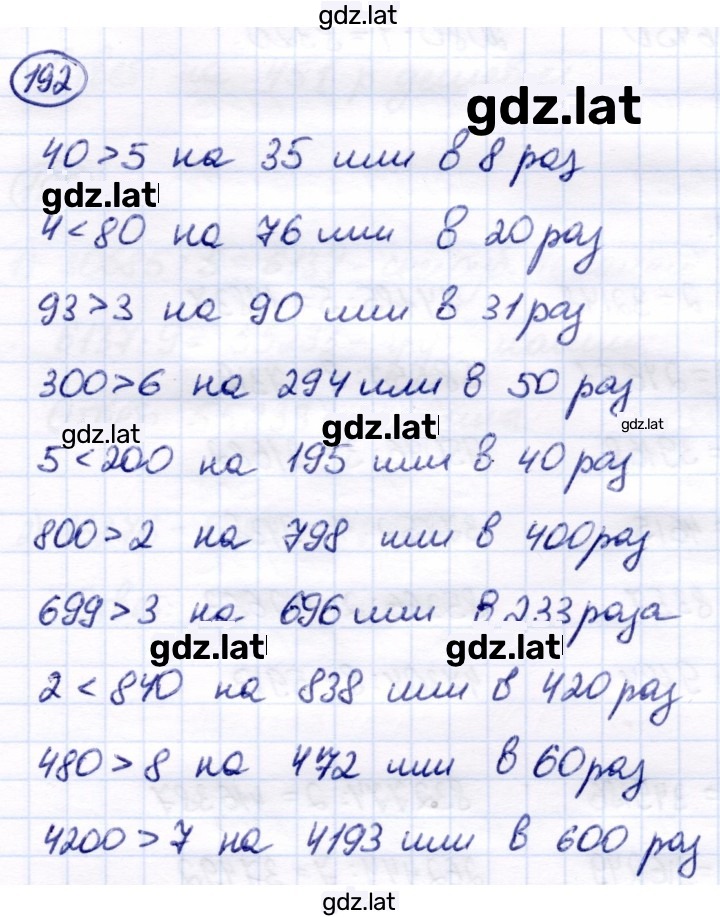 gdz.lat
192
gdz.lat
40>5 на 35 или в 8 раз
gdz.lat
4<80 на 76 или в 20 раз
93>3 на 90 или в 31 раз
300>6 на 294 или в 50 раз
gdz.lat gdz.lat gdz.lat
5<200 на 195 или в 40 раз
800>2 на 798 или в 400 раз
699>3 на 696 или в 233 раза
gdz.lat gdz.lat
2<840 на 838 или в 420 раз
480>8 на 472 или в 60 раз
4200>7 на 4193 или в 600 раз
gdz.lat